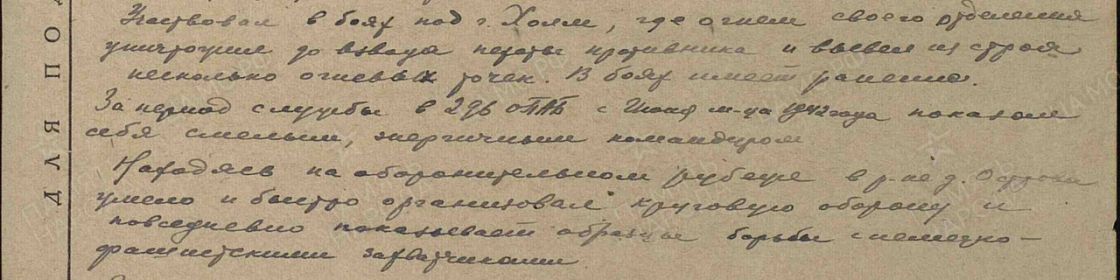 Участвовал в боях под г. Холм, где огнем своего отделения
уничтожил до взвода пехоты противника и вывел из строя
несколько огневых точек. В боях имеет ранение.
За период службы в 296 ОПАБ с м-ца 1942 года показал
себя смелым, энергичным командиром
Находясь на оборонительном рубеже в р-не д. Острова
умело и быстро организовал круговую оборону и
повседневно показывает образцы борьбы с немецко-
фашистскими захватчиками
ДЛЯ ПО